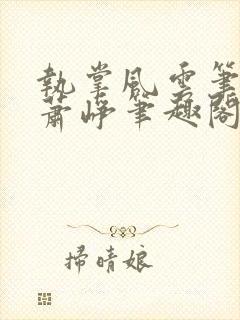 執掌風雲筆
蕭崢筆趣閣
掃晴娘